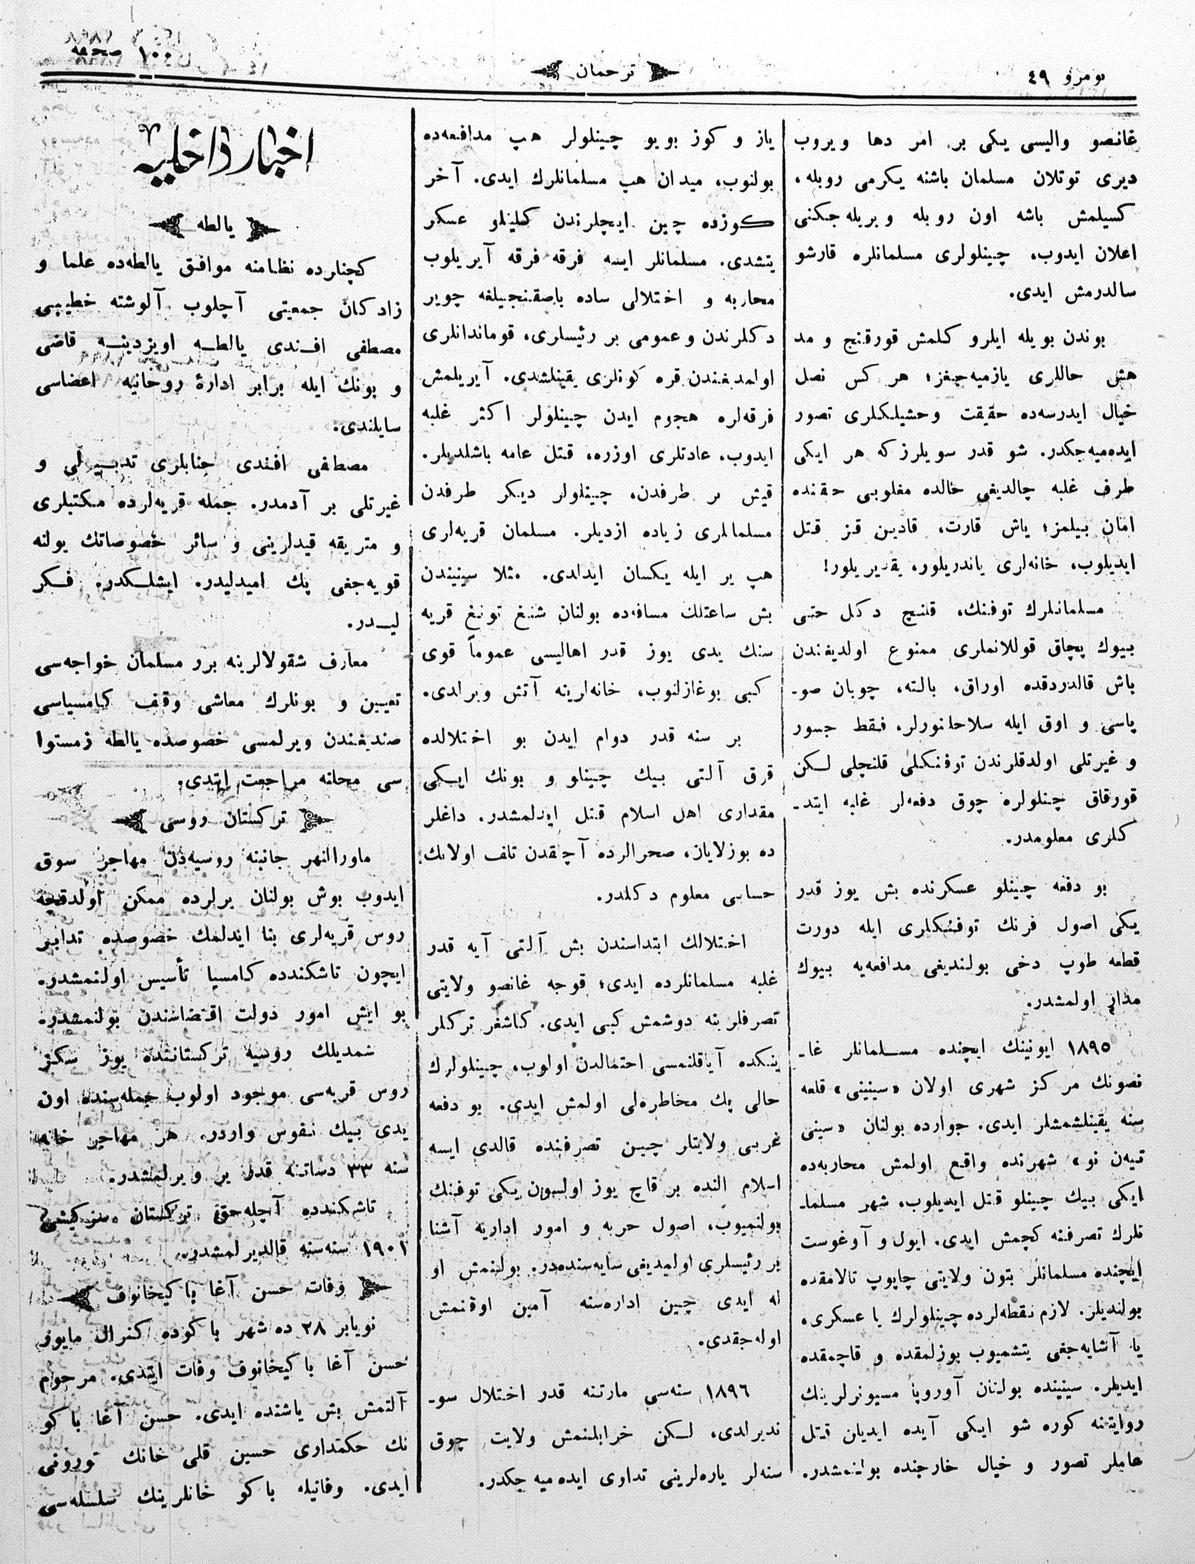 نومرو ٤٩
ترجمان
١٠٠ صحفه
غانصو واليسى يكى بر امر دها ويروب
ديرى توتلان مسلمان باشنه يكرمى روبله،
كسيلمش باشه اون روبله ويريله‌جكنى
اعلان ايدوب، چينلولرى مسلمانلره قارشو
سالدرمش ايدى.
بوندن بويله ايلرو كلمش قورقنج و مد
هش حاللرى يازميه‌جغز؛ هر كس نصل
خيال ايدرسه‌ده حقيقت وحشيلكلرى تصور
ايده‌ميه‌جكدر. شو قدر سويلرزكه هر ايكى
طرف غلبه چالديغى حالده مغلوبى حقنده
امان بيلمز؛ ياش قارت، قادين قز قتل
ايديلوب، خانه‌لرى ياندريلور، يقديريلور!
مسلمانلرك توفنك، قلنچ دكل حتى
بيوك پچاق قوللانملرى ممنوع اولديغندن
باش قالدردقده اوراق، بالته، چوبان صو-
پاسى و اوق ايله سلاحلنورلر، فقط جسور
و غيرتلى اولدقلرندن توفنكلى قلنچلى لكن
قورقاق چنلولره چوق دفعه‌لر غلبه ايتد-
كلرى معلومدر.
بو دفعه چينلو عسكرنده بش يوز قدر
يكى اصول فرنك توفنكلرى ايله دورت
قطعه طوپ دخى بولنديغى مدافعه‌يه بيوك
مدار اولمشدر.
١٨٩٥ ايونينك ايچنده مسلمانلر غا-
نصونك مركز شهرى اولان «سينينى» قلعه
سنه يقينلشمشلر ايدى. جوارده بولنان «سينى
تيه‌ن نو» شهرنده واقع اولمش محاربه‌ده
ايكى بيك چينلو قتل ايديلوب، شهر مسلما-
نلرك تصرفنه كچمش ايدى. ايول و آوغوست
ايچنده مسلمانلر بتون ولايتى چاپوپ تالامقده
بولنديلر. لازم نقطه‌لرده چينلولرك يا عسكرى،
يا آتشابه‌جغى يتشميوب بوزلمقده و قاچمقده
ايديلر. سينينده بولنان آوروپا مسيونرلرينك
روايتنه كوره شو ايكى آيده ايديان قتل
عاملر تصور و خيال خارجنده بولنمشدر.
ياز و كوز بويو چينلولر هپ مدافعه‌ده
بولنوب، ميدان هپ مسلمانلرك ايدى. آخر
كوزده چين ايچلرندن كليتلو عسكر
يتشدى. مسلمانلر ايسه فرقه فرقه آيريلوب
محاربه و اختلالى ساده باصقنجيلغه چوير
دكلرندن وعمومى بر رئيسلرى، قومانداننلرى
اولمديغندن قره كونلرى يقينلشدى. آيريلمش
فرقه‌لره هجوم ايدن چينلولر اكثر غلبه
ايدوب، عادتلرى اوزره، قتل عامه باشلديلر.
قيش بر طرفدن، چينلولر ديكر طرفدن
مسلمانلرى زياده ازديلر. مسلمان قريه‌لرى
هپ ير ايله يكسان ايدلدى. مثلا سينيندن
بش ساعتلك مسافه‌ده بولنان شنغ تونغ قريه
سنك يدى يوز قدر اهاليسى عموماً قوى
كبى بوغازلنوب، خانه‌لرينه آتش ويرلدى.
بر سنه قدر دوام ايدن بو اختلالده
قرق آلتى بيك چينلو و بونك ايكى
مقدارى اهل اسلام قتل ايدلمشدر. داغلر
ده بوزلايان، صحرالرده آچقدن تلف اولانك
حسابى معلوم دكلدر.
اختلالك ابتداسندن بش آلتى آيه قدر
غلبه مسلمانلرده ايدى؛ قوجه غانصو ولايتى
تصرفلرينه دوشمش كبى ايدى. كاشغر تركلر
ينكده آياقلنمسى احتمالدن اولوب، چينلولرك
حالى پك مخاطره‌لى اولمش ايدى. بو دفعه
غربى ولايتلر چين تصرفنده قالدى ايسه
اسلام النده بر قاچ يوز اولسون يكى توفنك
بولنميوب، اصول حربه و امور اداريه آشنا
بر رئيسلرى اولمديغى سايه‌سنده‌در. بولنمش او
له ايدى چين اداره‌سنه آمين اوقنمش
اوله‌جقدى.
١٨٩٦ سنه‌سى مارتنه قدر اختلال سو-
ندیرلدى، لكن خرابلنمش ولايت چوق
سنه‌لر ياره‌لرينى تداوى ايده‌ميه‌جكدر.
اخبار داخليه
يالطه
كچنلرده نظامنه موافق يالطه‌ده علما و
زادكان جمعيتى آچلوب آلوشته خطيبى
مصطفى افندى يالطه اويزدينه قاضى
و بونك ايله برابر ادارۀ روحانيه اعضاسى
سايلندى.
مصطفى افندى جنابلرى تدبيرلى و
غيرتلى بر آدمدر. جمله قريه‌لرده مكتبلرى
و متريقه قيدارينى و سائر خصوصاتك يولنه
قويه‌جغى پك اميدليدر. ايشلكدر. فكر
ليدر.
معارف شقولالرينه برر مسلمان خواجه‌سى
تعيين و بونلرك معاشى وقف كاميسياسى
صنديغندن ويرلمسى خصوصده يالطه زمستوا
سى محانه مراجعت ايتدى.
تركستان روسى
ماورالنهر جانبنه روسيه‌دن مهاجر سوق
ايدوب بوش بولنان يرلرده ممكن اولدقچه
روس قريه‌لرى بنا ايدلمك خصوصده تدابير
ايچون تاشكندده كامسيا تأسيس اولنمشدر.
بو ايش امور دولت اقتضاسندن بولنمشدر.
شمديلك روسيه تركستاننده يوز سكز
روس قريه‌سى موجود اولوب جمله‌سنده اون
يدى بيك نفوس واردر. هر مهاجر خانه
سنه ٣٣ دساتنه قدر ير ويرلمشدر.
تاشكندده آچله‌جق تركستان سركيسى
١٩٠١ سنه‌سنه قالديرلمشدر.
وفات حسن آغا باكيخانوف
نويابر ٢٨ ده شهر باكوده كنرال مايور
حسن آغا باكيخانوف وفات ايتدى. مرحوم
آلتمش بش ياشنده ايدى. حسن آغا باكو
نك حكمدارى حسين قلى خانك تورونى
ايدى. وفاتيله باكو خانلرينك سلسله‌سى